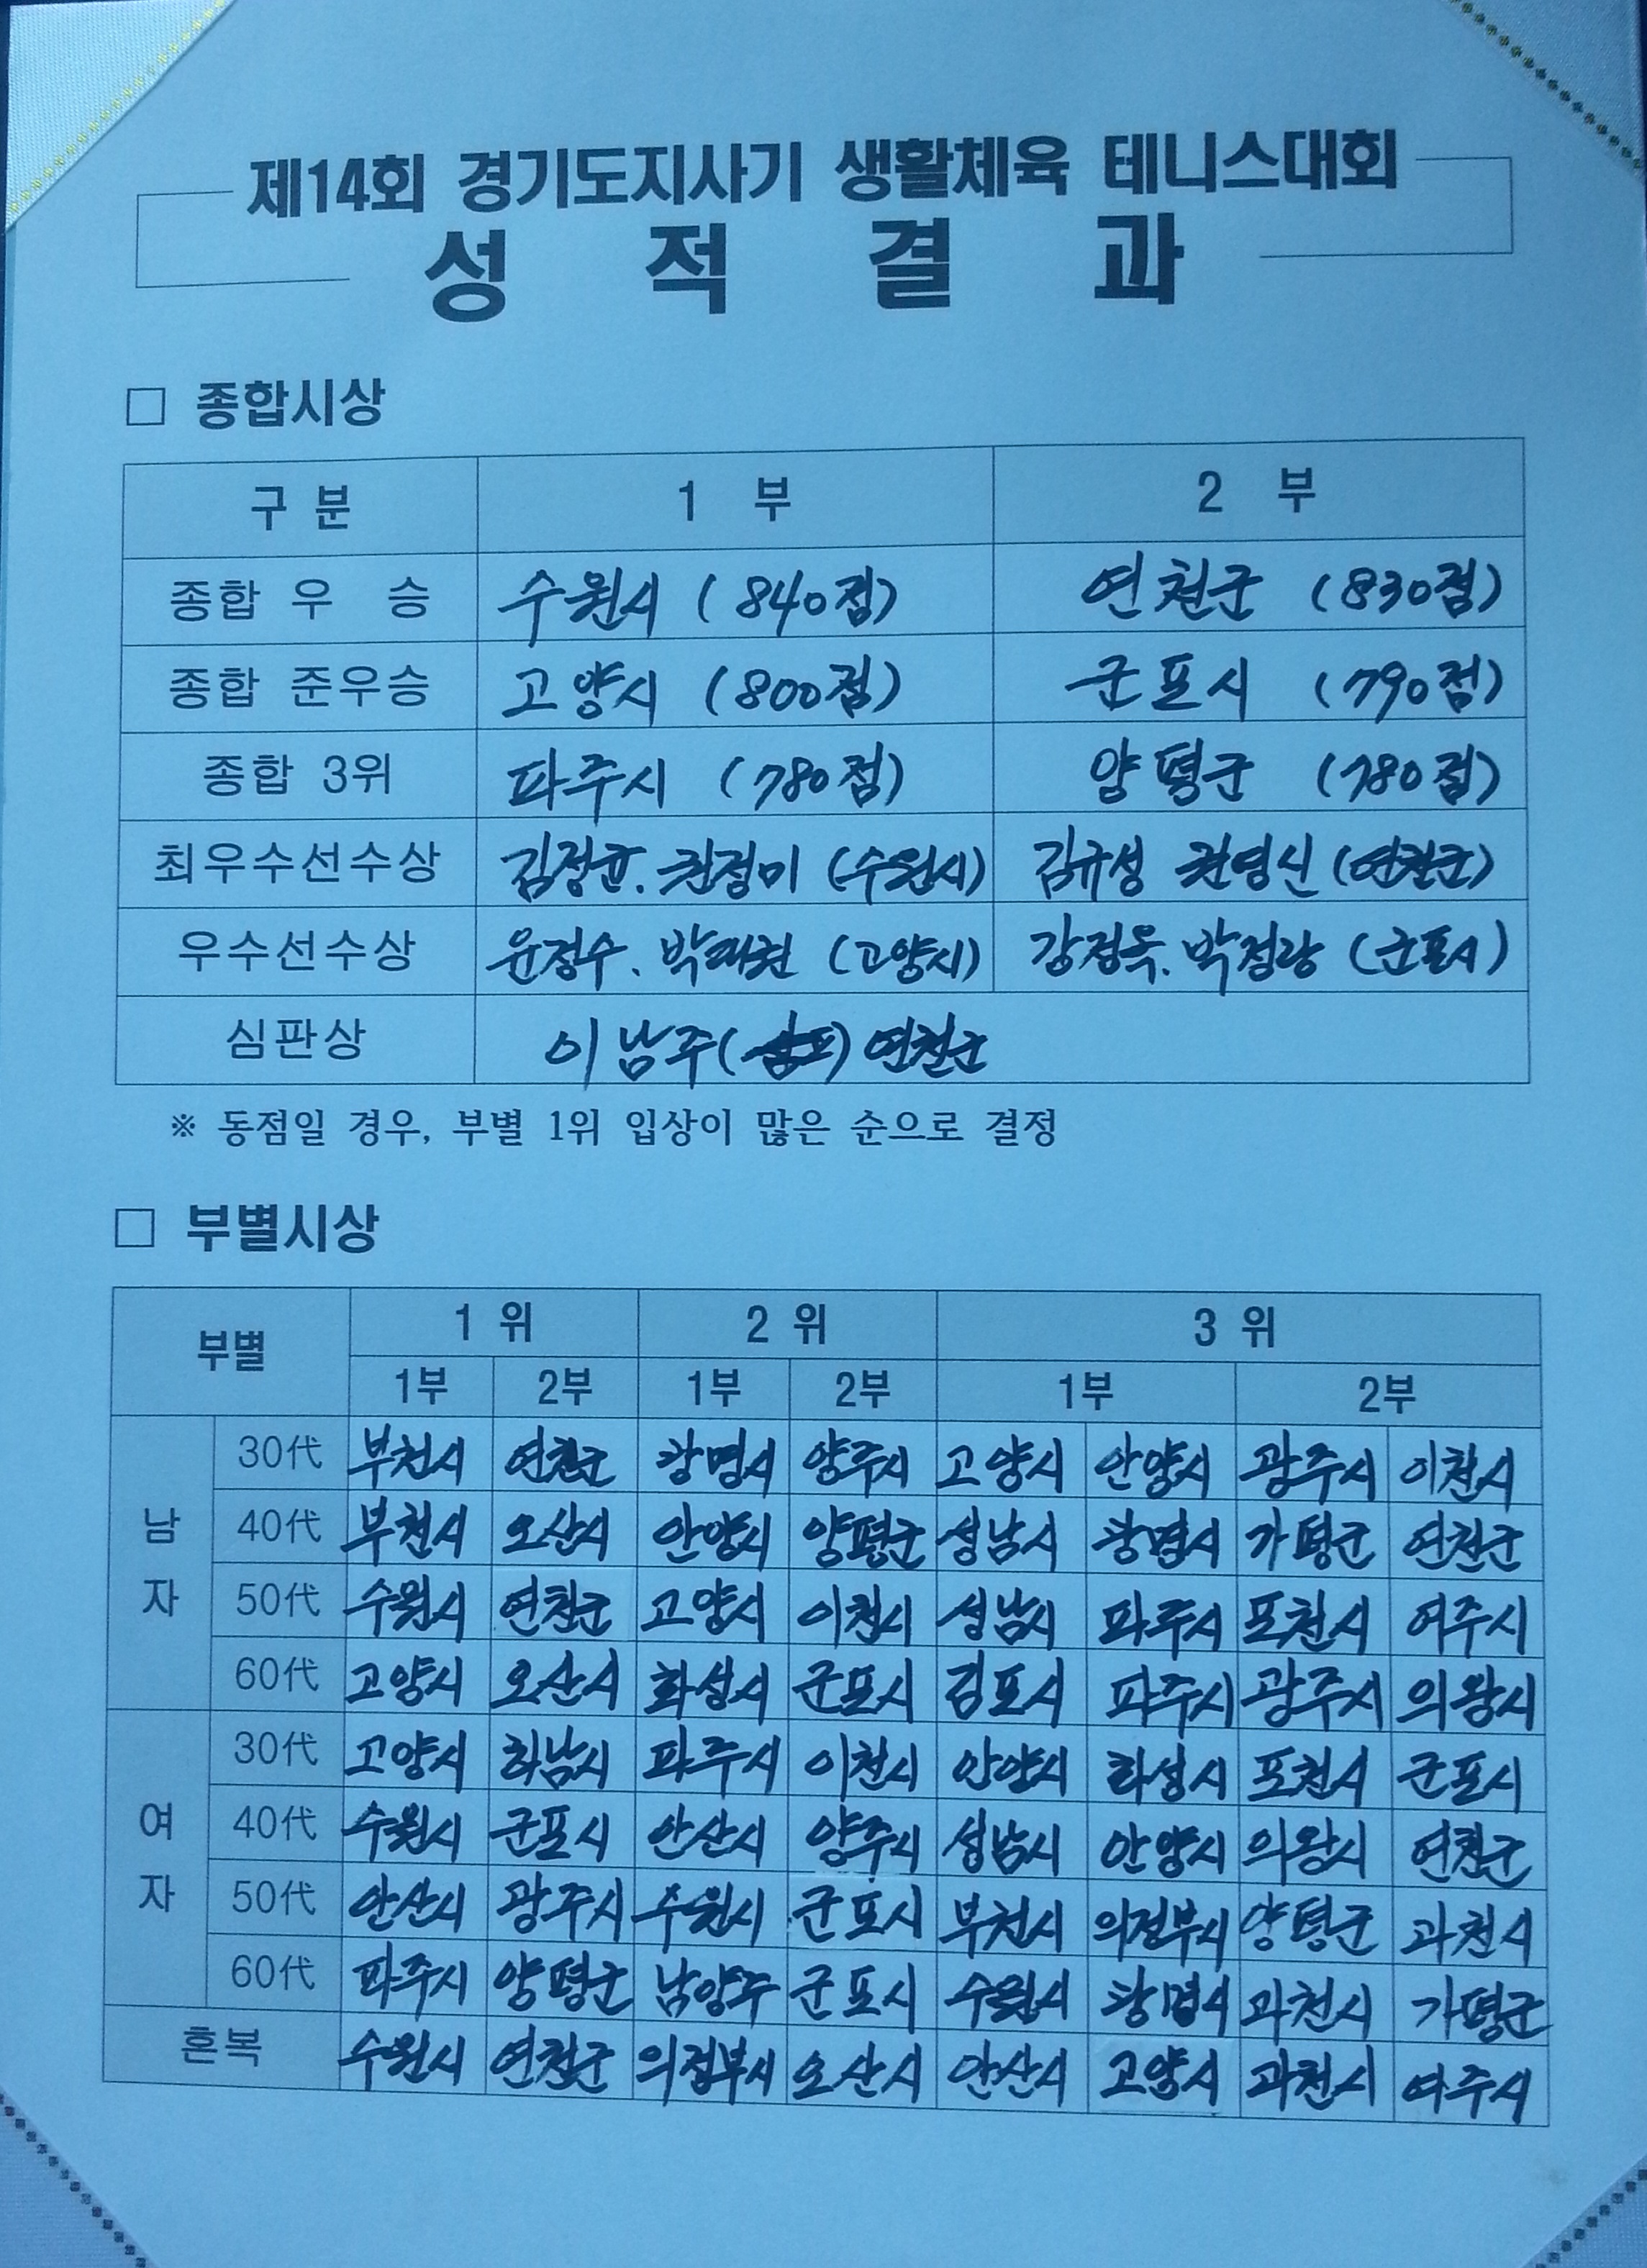 제14회 경기도지사기 생활체육 테니스대회
성 적 결 과
□ 종합시상
구 분 1 부 2 부
종합 우 승 수원시 (840점) 연천군 (830점)
종합 준우승 고양시 (800점) 군포시 (790점)
종합 3위 파주시 (780점) 양평군 (780점)
최우수선수상 김정균. 권정미 (수원시) 김규성 권영신 (연천군)
우수선수상 윤정수. 박태권 (고양시) 강정옥. 박정랑 (군포시)
심판상 이남주 ( ) 연천군
※ 동점일 경우, 부별 1위 입상이 많은 순으로 결정
□ 부별시상
부별 1 위 2 위 3 위
1부 2부 1부 2부 1부 2부
남자 30代 부천시 연천군 광명시 양주시 고양시 안양시 광주시 이천시
40代 부천시 오산시 안양시 양평군 성남시 광명시 가평군 연천군
50代 수원시 연천군 고양시 이천시 성남시 파주시 포천시 여주시
60代 고양시 오산시 화성시 군포시 김포시 파주시 광주시 의왕시
여자 30代 고양시 하남시 파주시 이천시 안양시 화성시 포천시 군포시
40代 수원시 군포시 안산시 양주시 성남시 안양시 의왕시 연천군
50代 안산시 광주시 수원시 군포시 부천시 의정부시 양평군 과천시
60代 파주시 양평군 남양주 군포시 수원시 광명시 과천시 가평군
혼복 수원시 연천군 의정부시 오산시 안산시 고양시 과천시 여주시